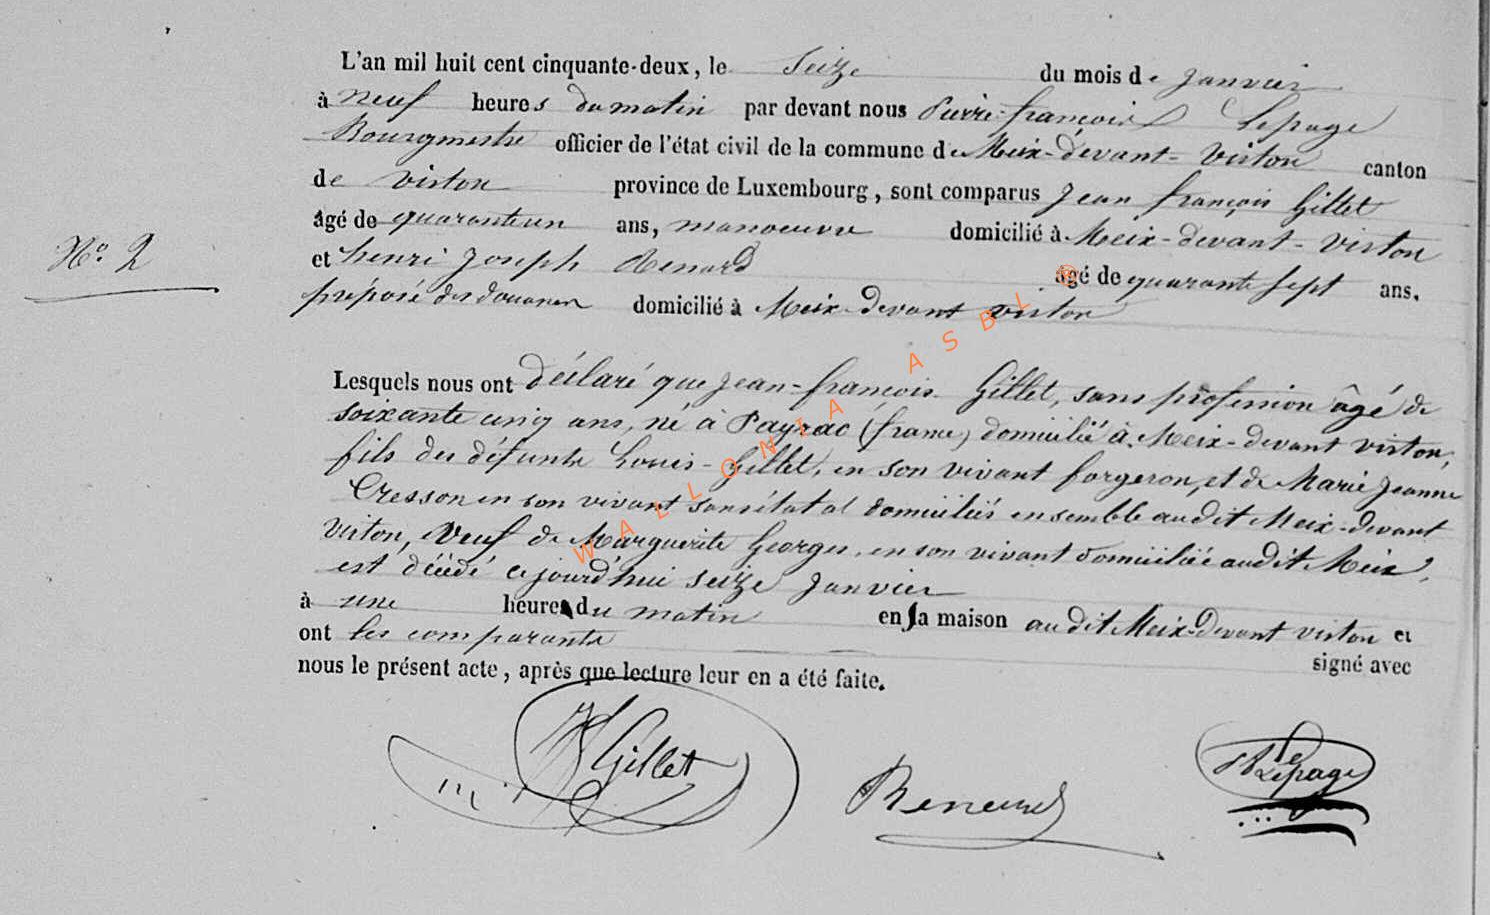 L'an mil huit cent cinquante-deux, le seize du mois de janvier
à neuf heures du matin par devant nous Pierre-françois Lepage
Bourgmestre officier de l'état civil de la commune de Meix-devant-virton canton
de virton province de Luxembourg, sont comparus Jean françois Gillet
âgé de quarante un ans, manoeuvre domicilié à Meix-devant-virton
N° 2
et henri Joseph Renard âgé de quarante sept ans,
préposé des douanes domicilié à Meix-devant virton
Lesquels nous ont déclaré que Jean-françois Gillet, sans profession âgé de
soixante cinq ans, né à Payrac (france) domicilié à Meix-devant virton,
fils des défunts Louis Gillet, en son vivant forgeron, et de Marie Jeanne
Cresson en son vivant sans état et domiciliés ensemble audit Meix-devant
virton, veuf de Marguerite Georges, en son vivant domiciliée audit Meix,
est décédé cejourd'hui seize janvier
à une heure du matin en sa maison audit Meix-devant virton et
ont les comparants signé avec
nous le présent acte, après que lecture leur en a été faite.
JF Gillet
Renard
Lepage
WALLONIA ASBL ®